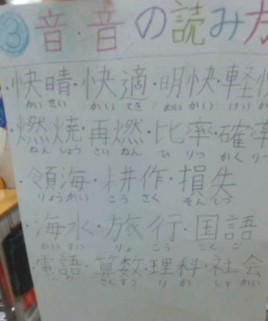 ③音・音の読み方
快晴・快適・明快・軽快
かい せい かい てき めい かい けい かい
燃焼・再燃・比率・確率
ねん しょう さい ねん ひ りつ かく りつ
領海・耕作・損失
りょうかい こう さく そん しつ
海水・旅行・国語
かい すい りょ こう こく ご
算数・理科・社会
さんすう り か しゃ かい